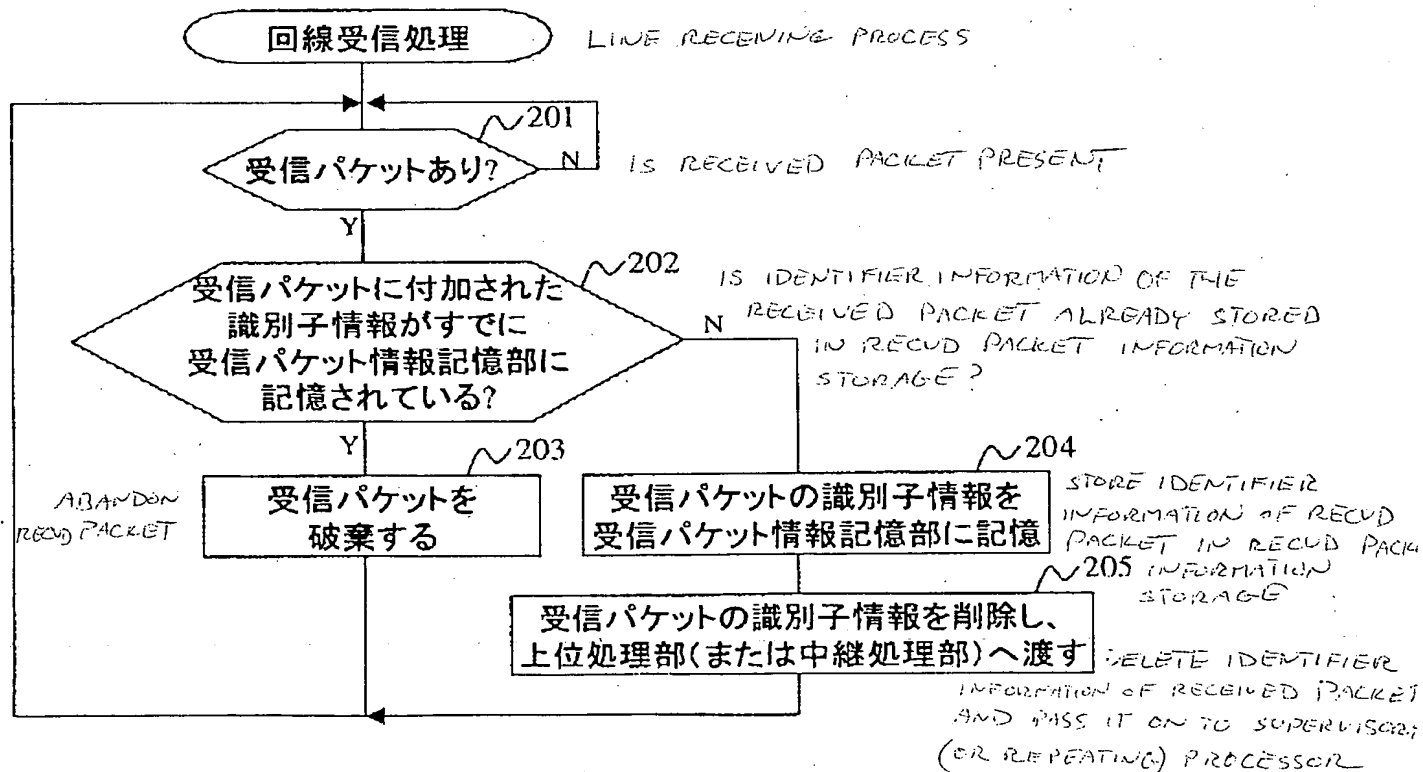 回線受信処理
LINE RECEIVING PROCESS
201
受信パケットあり?
N
IS RECEIVED PACKET PRESENT
Y
202
受信パケットに付加された
識別子情報がすでに
受信パケット情報記憶部に
記憶されている?
N
IS IDENTIFIER INFORMATION OF THE
RECEIVED PACKET ALREADY STORED
IN RECVD PACKET INFORMATION
STORAGE?
Y
203
受信パケットを
破棄する
ABANDON
RECVD PACKET
204
受信パケットの識別子情報を
受信パケット情報記憶部に記憶
STORE IDENTIFIER
INFORMATION OF RECVD
PACKET IN RECVD PACK
INFORMATION
STORAGE
205
受信パケットの識別子情報を削除し、
上位処理部(または中継処理部)へ渡す
DELETE IDENTIFIER
INFORMATION OF RECEIVED PACKET
AND PASS IT ON TO SUPERVISORY
(OR REPEATING) PROCESSOR